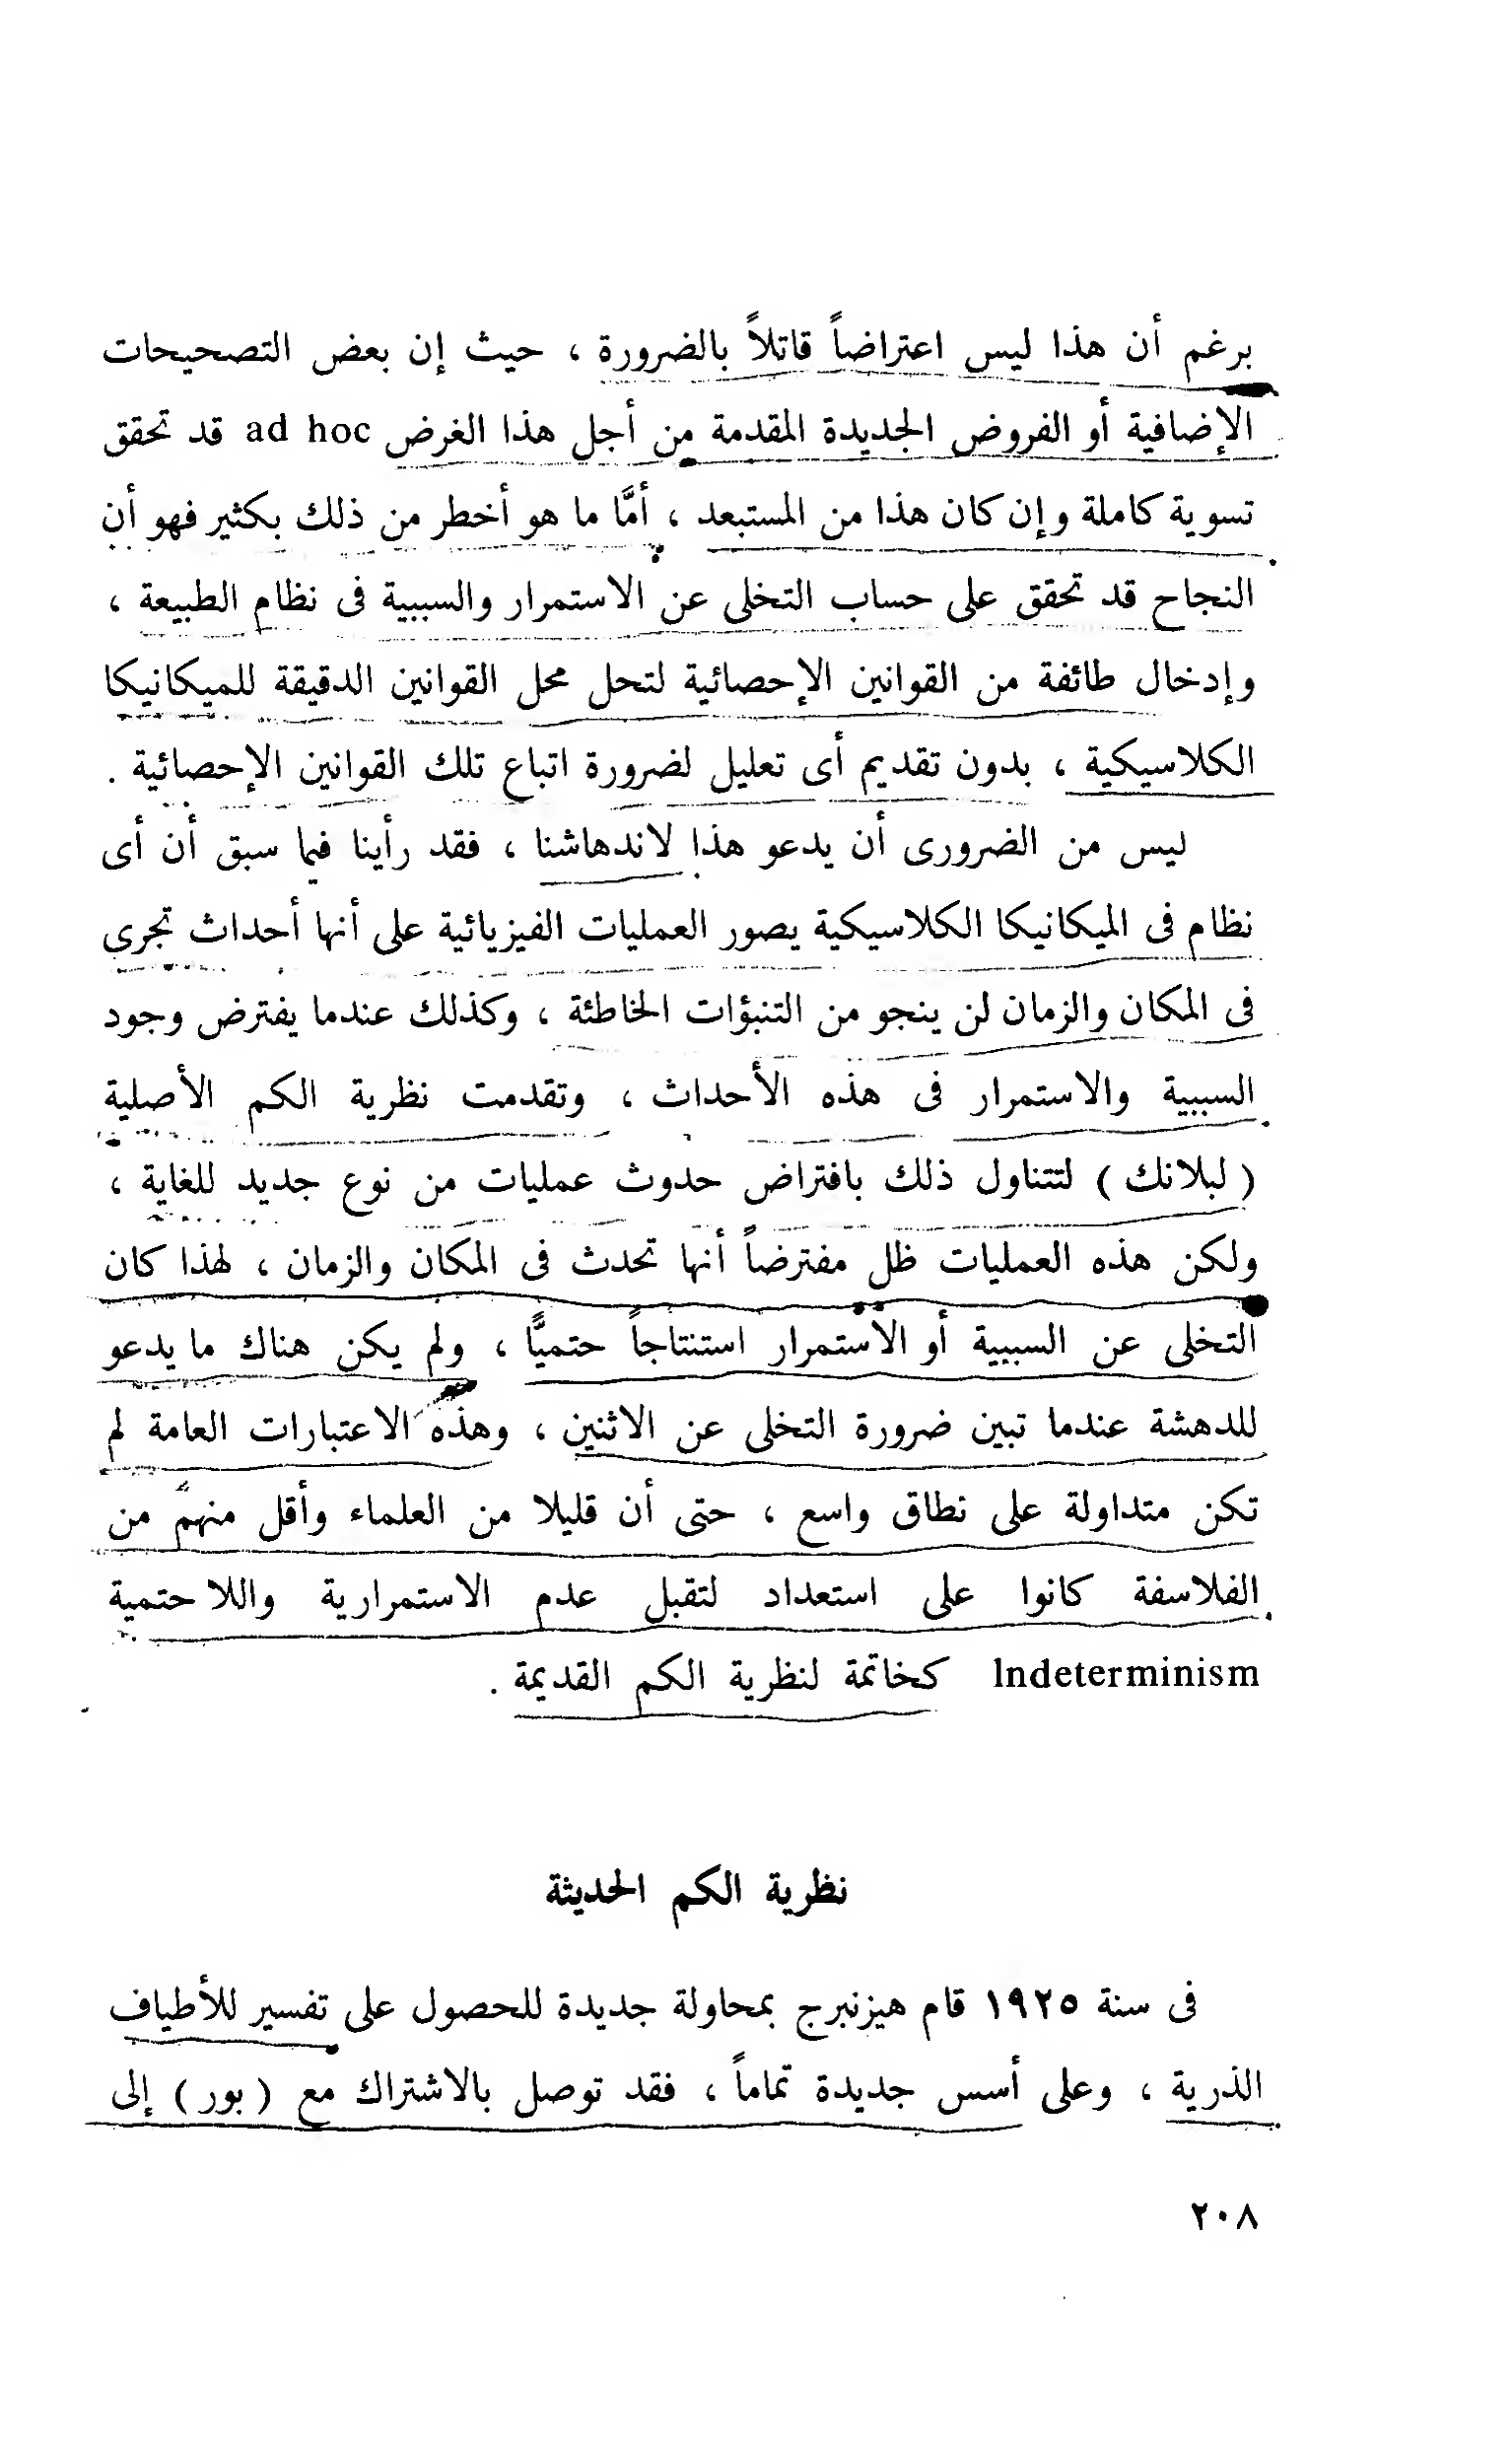 برغم أن هذا ليس اعتراضاً قاتلاً بالضرورة ، حيث إن بعض التصحيحات
الإضافية أو الفروض الجديدة المقدمة من أجل هذا الغرض ad hoc قد تحقق
تسوية كاملة وإن كان هذا من المستبعد ، أمَّا ما هو أخطر من ذلك بكثير فهو أن
النجاح قد تحقق على حساب التخلى عن الاستمرار والسببية فى نظام الطبيعة ،
وإدخال طائفة من القوانين الإحصائية لتحل محل القوانين الدقيقة للميكانيكا
الكلاسيكية ، بدون تقديم أى تعليل لضرورة اتباع تلك القوانين الإحصائية .
ليس من الضرورى أن يدعو هذا لاندهاشنا ، فقد رأينا فيما سبق أن أى
نظام فى الميكانيكا الكلاسيكية يصور العمليات الفيزيائية على أنها أحداث تجرى
فى المكان والزمان لن ينجو من التنبؤات الخاطئة ، وكذلك عندما يفترض وجود
السببية والاستمرار فى هذه الأحداث ، وتقدمت نظرية الكم الأصلية
( لبلانك ) لتتناول ذلك بافتراض حدوث عمليات من نوع جديد للغاية ،
ولكن هذه العمليات ظل مفترضاً أنها تحدث فى المكان والزمان ، لهذا كان
التخلى عن السببية أو الاستمرار استنتاجاً حتميًّا ، ولم يكن هناك ما يدعو
للدهشة عندما تبين ضرورة التخلى عن الاثنين ، وهذه الاعتبارات العامة لم
تكن متداولة على نطاق واسع ، حتى أن قليلا من العلماء وأقل منهم من
الفلاسفة كانوا على استعداد لتقبل عدم الاستمرارية واللاحتمية
Indeterminism كخاتمة لنظرية الكم القديمة .
نظرية الكم الحديثة
فى سنة ١٩٢٥ قام هيزنبرج بمحاولة جديدة للحصول على تفسير للأطياف
الذرية ، وعلى أسس جديدة تماماً ، فقد توصل بالاشتراك مع ( بور ) إلى
٢٠٨